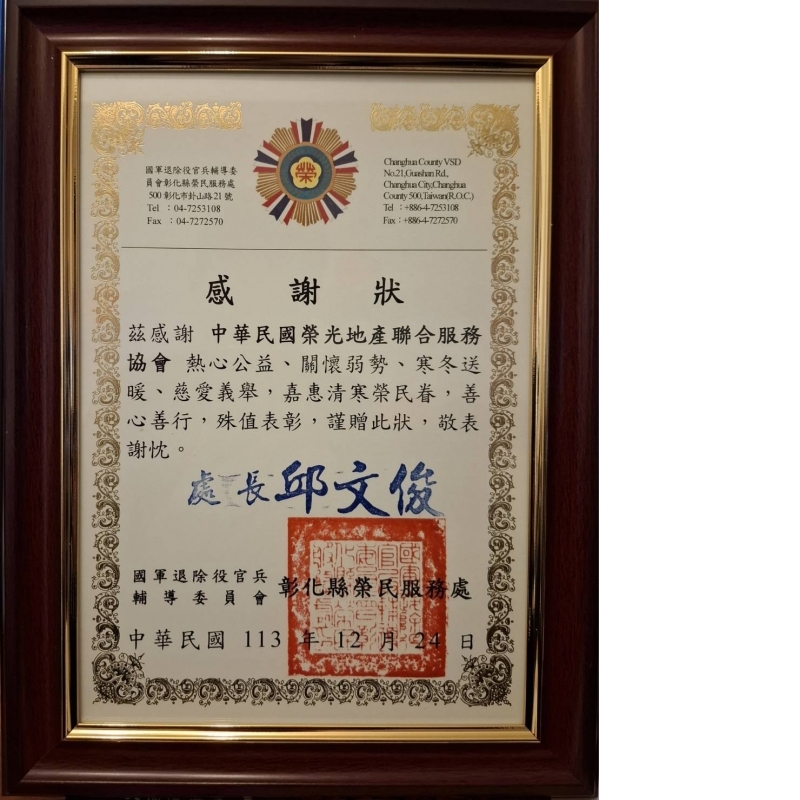 國軍退除役官兵輔導委
員會彰化縣榮民服務處
500 彰化市卦山路 21 號
Tel ：04-7253108
Fax ：04-7272570
榮
Changhua County VSD
No.21,Guashan Rd.,
Changhua City,Changhua
County 500,Taiwan(R.O.C.)
Tel ：+886-4-7253108
Fax：+886-4-7272570
感謝狀
茲感謝 中華民國榮光地產聯合服務
協會 熱心公益、關懷弱勢、寒冬送
暖、慈愛義舉，嘉惠清寒榮民眷，善
心善行，殊值表彰，謹贈此狀，敬表
謝忱。
處長邱文俊
國軍退除役官兵
輔導委員會 彰化縣榮民服務處
中華民國 113 年 12 月 24 日